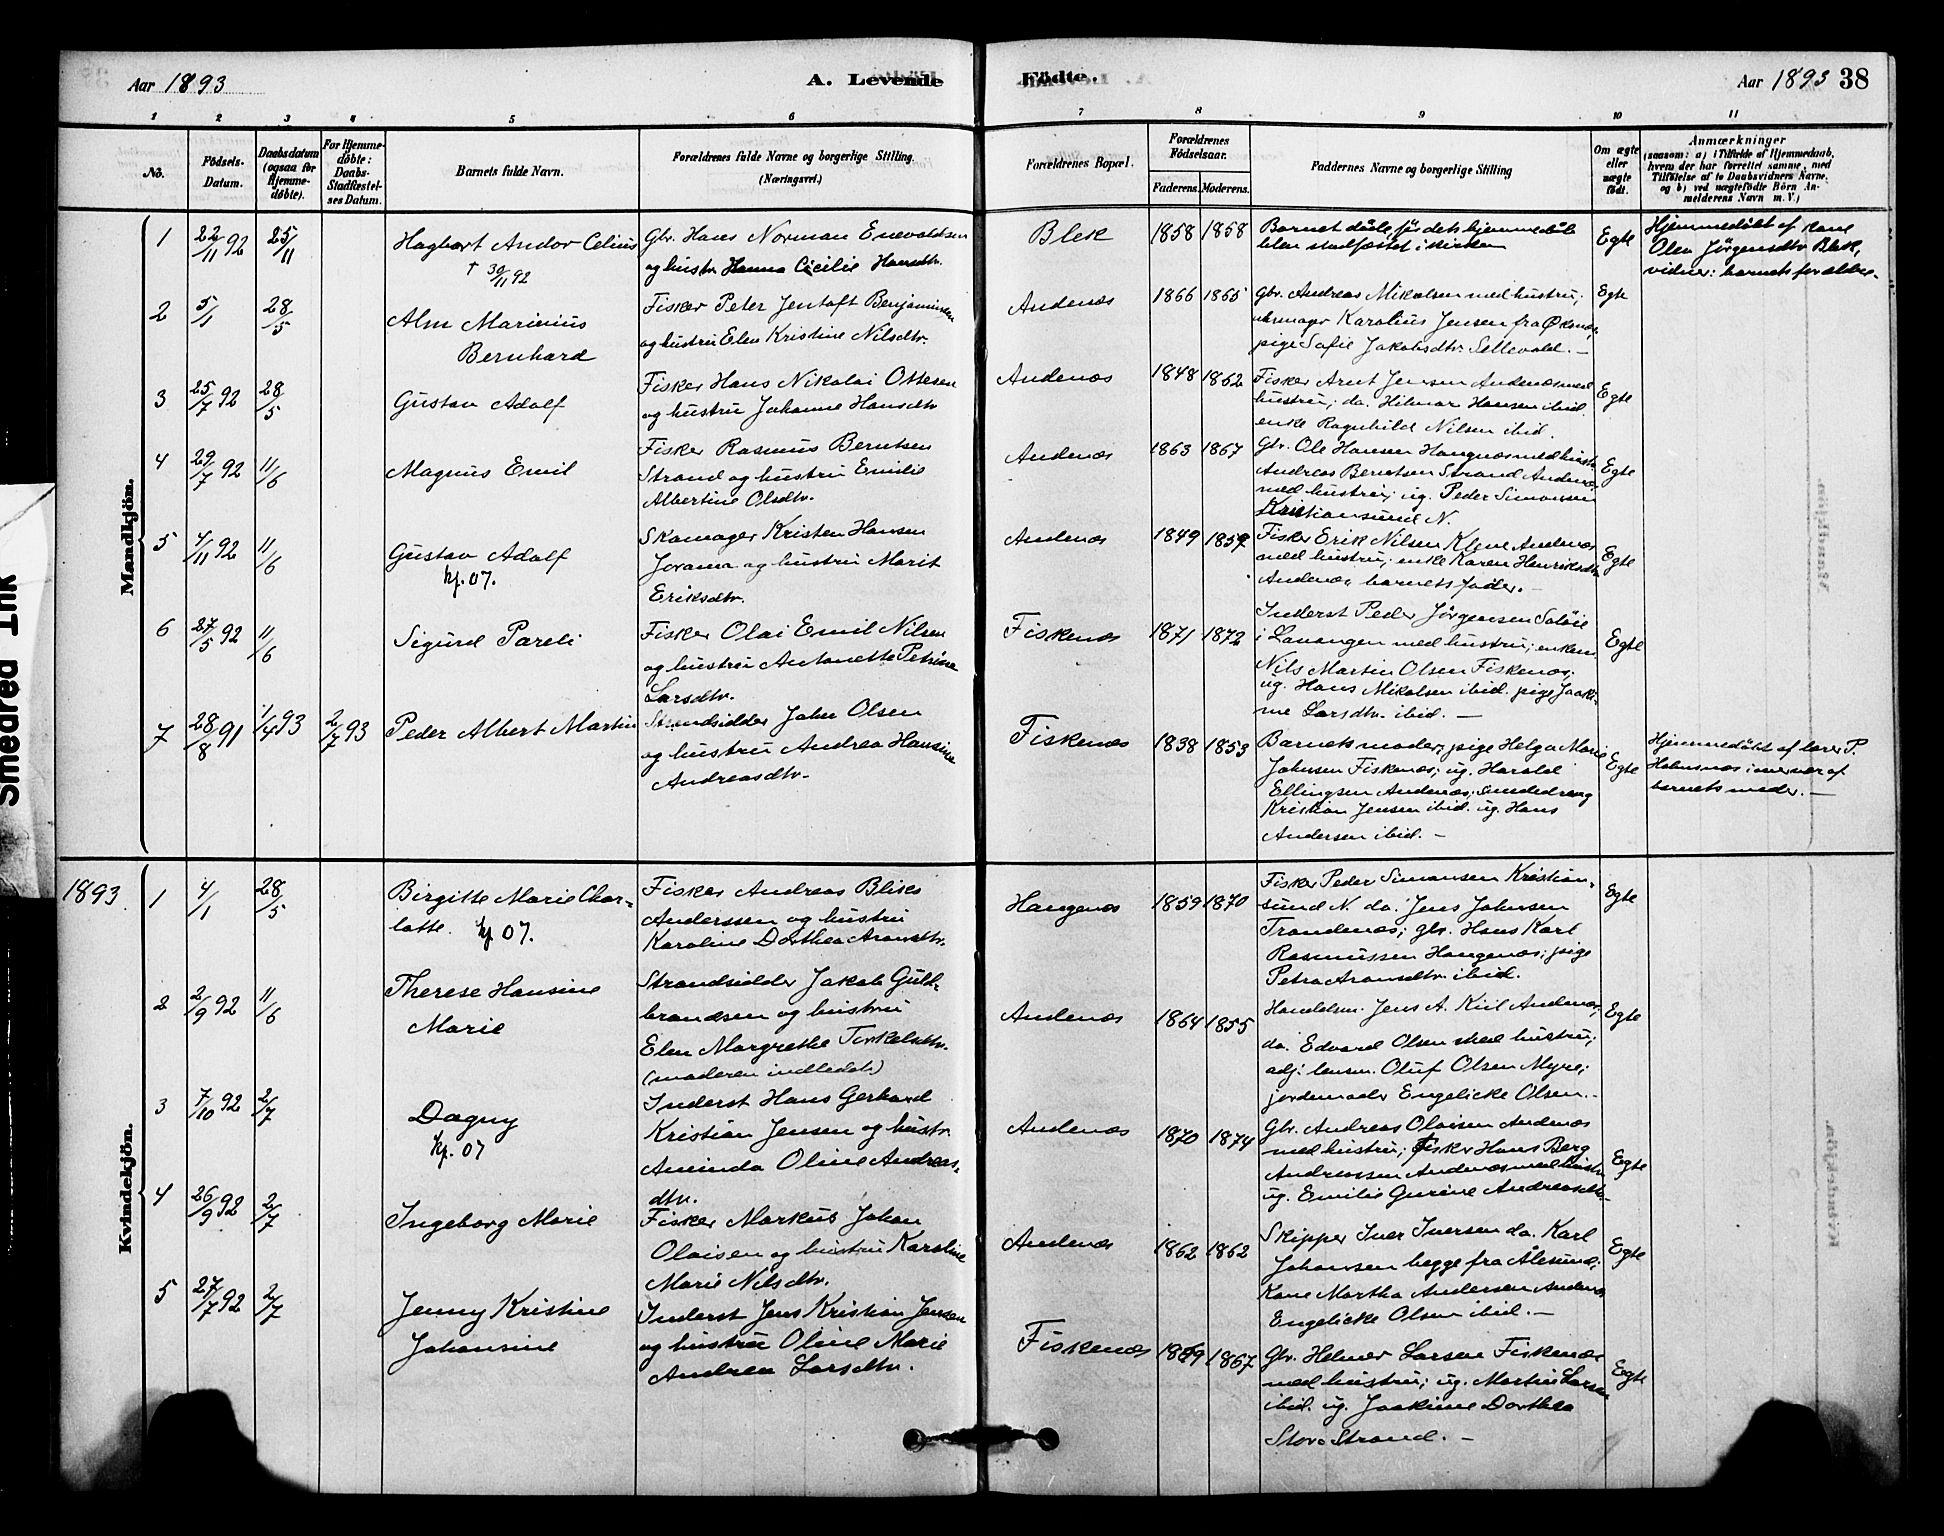 Aar 1893
A. Levende
Födte.
Aar 1893
38
1 2 3 4 5 6 7 8 9 10 11
No.
Födsels-Datum.
Daabsdatum (ogsaa for Hjemmedöbte).
For Hjemmedöbte: Daabs-Stadfæstelses Datum.
Barnets fulde Navn.
Forældrenes fulde Navne og borgerlige Stilling. (Næringsvei.)
Forældrenes Bopæl.
Forældrenes Födselsaar.
Faderens. Moderens.
Faddernes Navne og borgerlige Stilling
Om ægte eller uægte födt.
Anmærkninger
(saasom: a) i Tilfælde af Hjemmedaab,
hvem der har forrettet samme, med
Tilföielse af to Daabsvidners Navne,
og b) ved uægtefödte Börn An-
melderens Navn m. V.)
Mandkjön.
1 22/11 92 25/11 Hagbart Andor Celius
† 30/11 92
Gbr. Hans Norman Enevoldsen
og hustr. Hanna Cicilie Hansdtr.
Blek 1858 1858
Barnet døde før dets hjemmedåb
blev stadfæstet i kirken
Egte
Hjemmedøbt af kone
Olea Jörgensdtr Blek,
vidner: barnets forældre.
2 5/1 28/5 Alm Marinius
Bernhard
Fisker Peter Jentoft Benjaminsen
og hustru Elen Kristine Nilsdtr.
Andenæs 1866 1865
Gbr. Andreas Mikalsen med hustru;
urmager Karolius Jensen fra Øksnæs,
pige Sofie Jakobsdtr. Sellevold. –
Egte
3 25/7 92 28/5 Gustav Adolf
Fisker Hans Nikolai Ottesen
og hustru Johanne Hansdtr
Andenæs 1848 1852
Fisker Arnt Jensen Andenæs med
hustru; do. Hilmar Hansen ibid.
enke Ragnhild Nilsen ibid.
Egte
4 29/7 92 11/6 Magnus Emil
Fisker Rasmus Berntsen
Strand og hustru Emilie
Albertine Olsdtr.
Andenæs 1863 1867
Gbr. Ole Hansen Haugnæs med hustr.
Andreas Berntsen Strand Andenæs
med hustru; ug. Peder Simonsen
Kristiansund N.
Egte
5 4/11 92 11/6 Gustav Adolf
kp. 07.
Skomager Kristen Hansen
Jorama og hustru Marit
Eriksdtr.
Andenæs 1849 1859
Fisker Erik Nilsen Klene Andenæs
med hustru; enke Karen Henriksdtr
Andenæs, barnets fader. –
Egte
6 27/5 92 11/6 Sigurd Pareli
Fisker Olai Emil Nilsen
og hustru Antonette Petrine
Larsdtr.
Fiskenæs 1871 1872
Inderst Peder Jörgensen Saløie
i Lavangen med hustru; enkem.
Nils Martin Olsen Fiskenæs;
ug. Hans Mikalsen ibid. pige Joaki-
me Larsdtr. ibid. –
Egte
7 28/8 91 1/4 93 2/7 93 Peder Albert Martin
Strandsidder Johan Olsen
og hustru Andrea Hansine
Andreasdtr.
Fiskenæs 1838 1853
Barnets moder, pige Helga Marie
Johnsen Fiskenæs; ug. Harald
Ellingsen Andenæs; smededreng
Kristian Jensen ibid. ug. Hans
Andersen ibid. –
Egte
Hjemmedøbt af lærer P.
Holmsnæs i nærvær af
barnets moder. –
Kvindekjön.
1893
1 4/1 28/5 Birgitte Marie Char-
lotte. kp 07.
Fisker Andreas Bliks
Anderssen og hustru
Karoline Dorthea Aronsdtr.
Haugnæs 1859 1870
Fisker Peder Simonsen Kristian-
sund N. do. Jens Johnsen
Trondenæs; gbr. Hans Karl
Rasmussen Haugenæs; pige
Petra Aronsdtr. ibid.
Egte
2 2/9 92 11/6 Therese Hansine
Marie
Strandsidder Jakob Guld-
brandsen og hustru
Elen Margrethe Torkelsdtr.
(moderen indledet)
Andenæs 1864 1855
Handelsm. Jens A. Kiil Andenæs;
do. Edvard Olsen med hustru;
adj. lensm. Oluf Olsen Myre;
jordemoder Engelicke Olsen. –
Egte
3 7/10 92 2/7 Dagny
kp. 07
Inderst Hans Gerhard
Kristian Jensen og hustr.
Aminda Oline Andreas-
dtr.
Andenæs 1870 1874
Gbr. Andreas Olaisen Andenæs
med hustru; fisker Hans Berg
Andreassen Andenæs med hustru
ug. Emilie Gurine Andreasdtr.
Egte
4 26/9 92 2/7 Ingeborg Marie
Fisker Markus Johan
Olaisen og hustru Karoline
Marie Nilsdtr.
Andenæs 1862 1862
Skipper Iver Iversen do. Karl
Johansen begge fra Ålesund;
Kone Martha Andersen Andenæs
Engelicke Olsen ibid. –
Egte
5 27/7 92 2/7 Jenny Kristine
Johansine
Inderst Jens Kristian Jensen
og hustru Oline Marie
Andrea Larsdtr.
Fiskenæs 1869 1867
Gbr. Helmer Larsen Fiskenæs
med hustru; ug. Martin Larsen
ibid. ug. Joakime Dorthea
Stove Strand. –
Egte
Smedred Ink